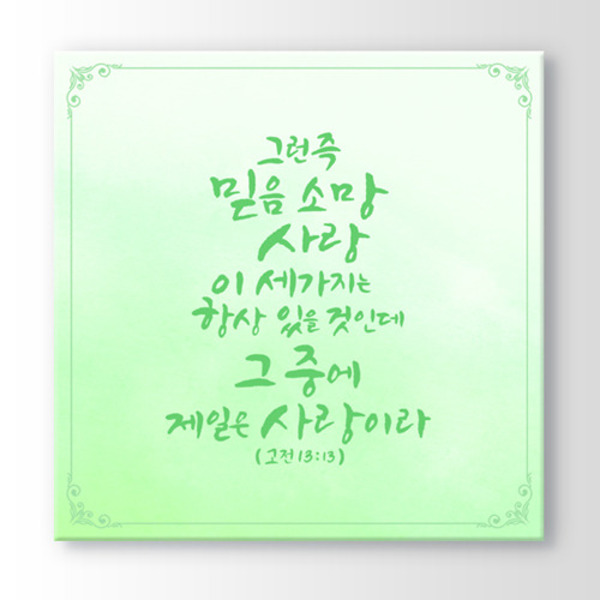 그런즉
믿음 소망
사랑
이 세가지는
항상 있을 것인데
그 중에
제일은 사랑이라
(고전 13:13)